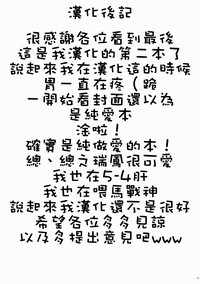 漢化後記
很感謝各位看到最後
這是我漢化的第二本了
說起來我在漢化這的時候
胃一直在疼（踣
一開始看封面還以為
是純愛本
淦啦！
確實是純做愛的本！
總、總之瑞鳳很可愛
我也在5-4肝
我也在喂馬戰神
說起來我漢化還不是很好
希望各位多多見諒
以及多提出意見吧www